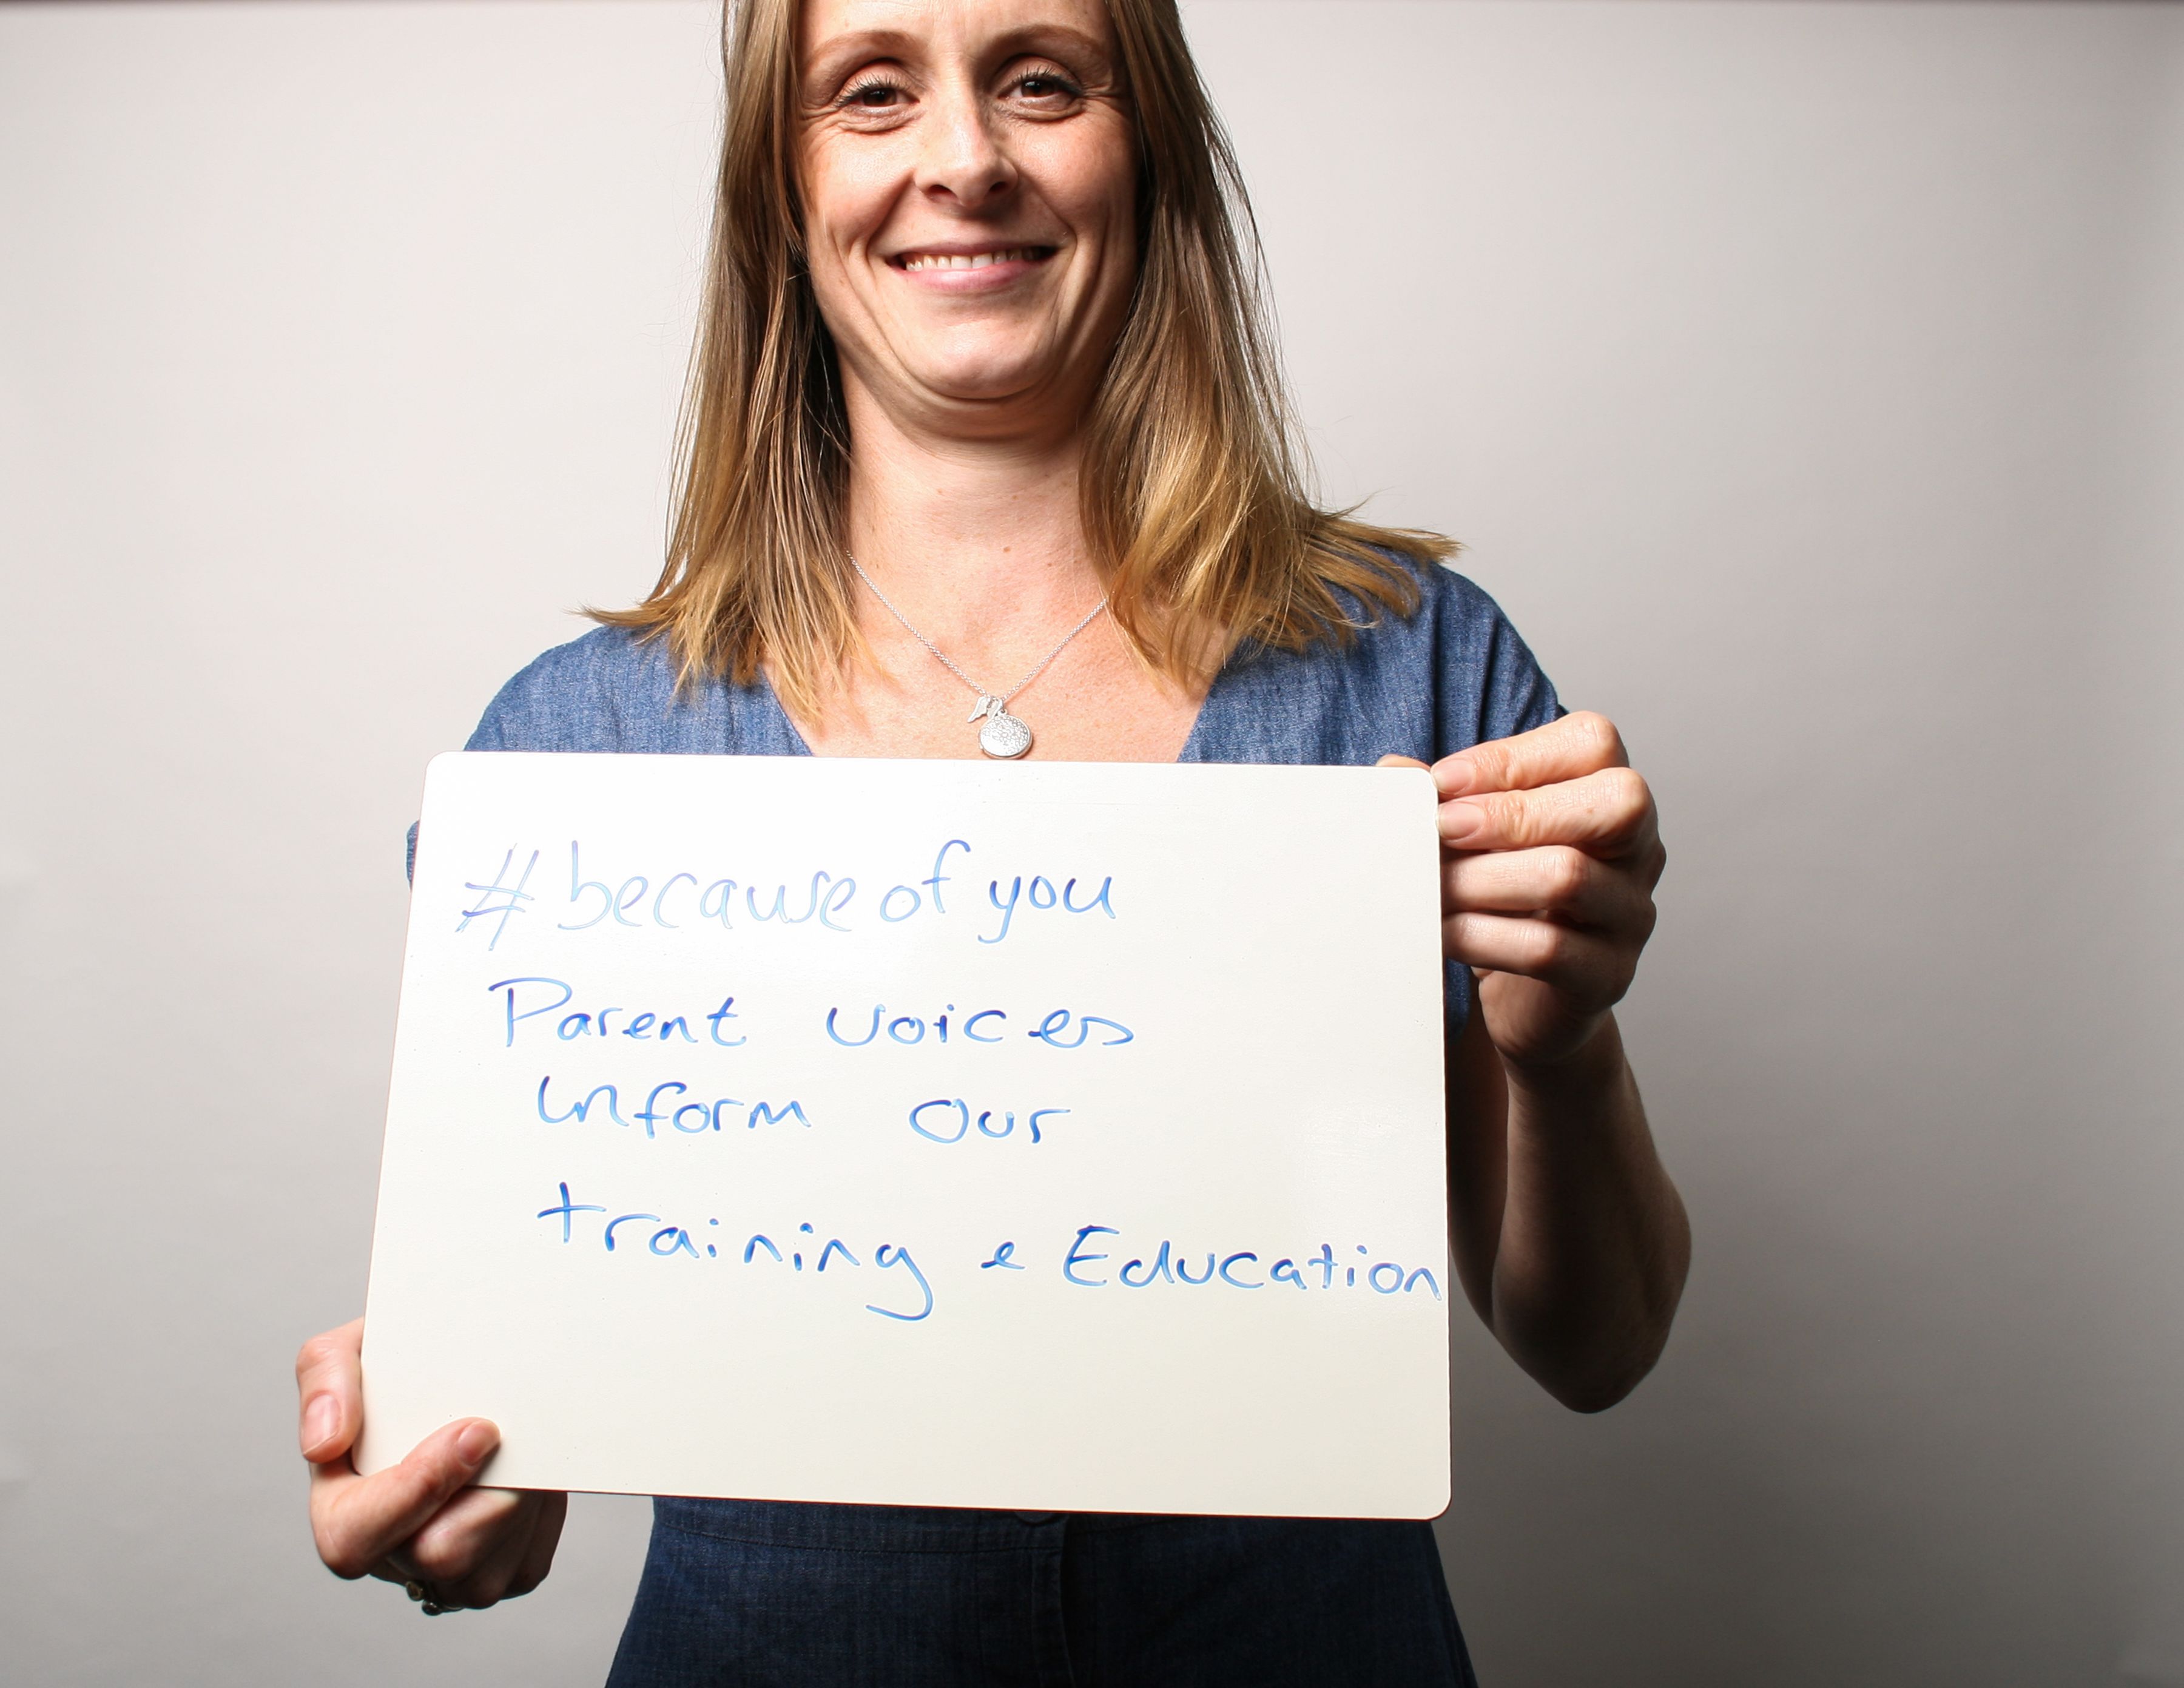 #because of you
Parent voices
inform our
training & Education